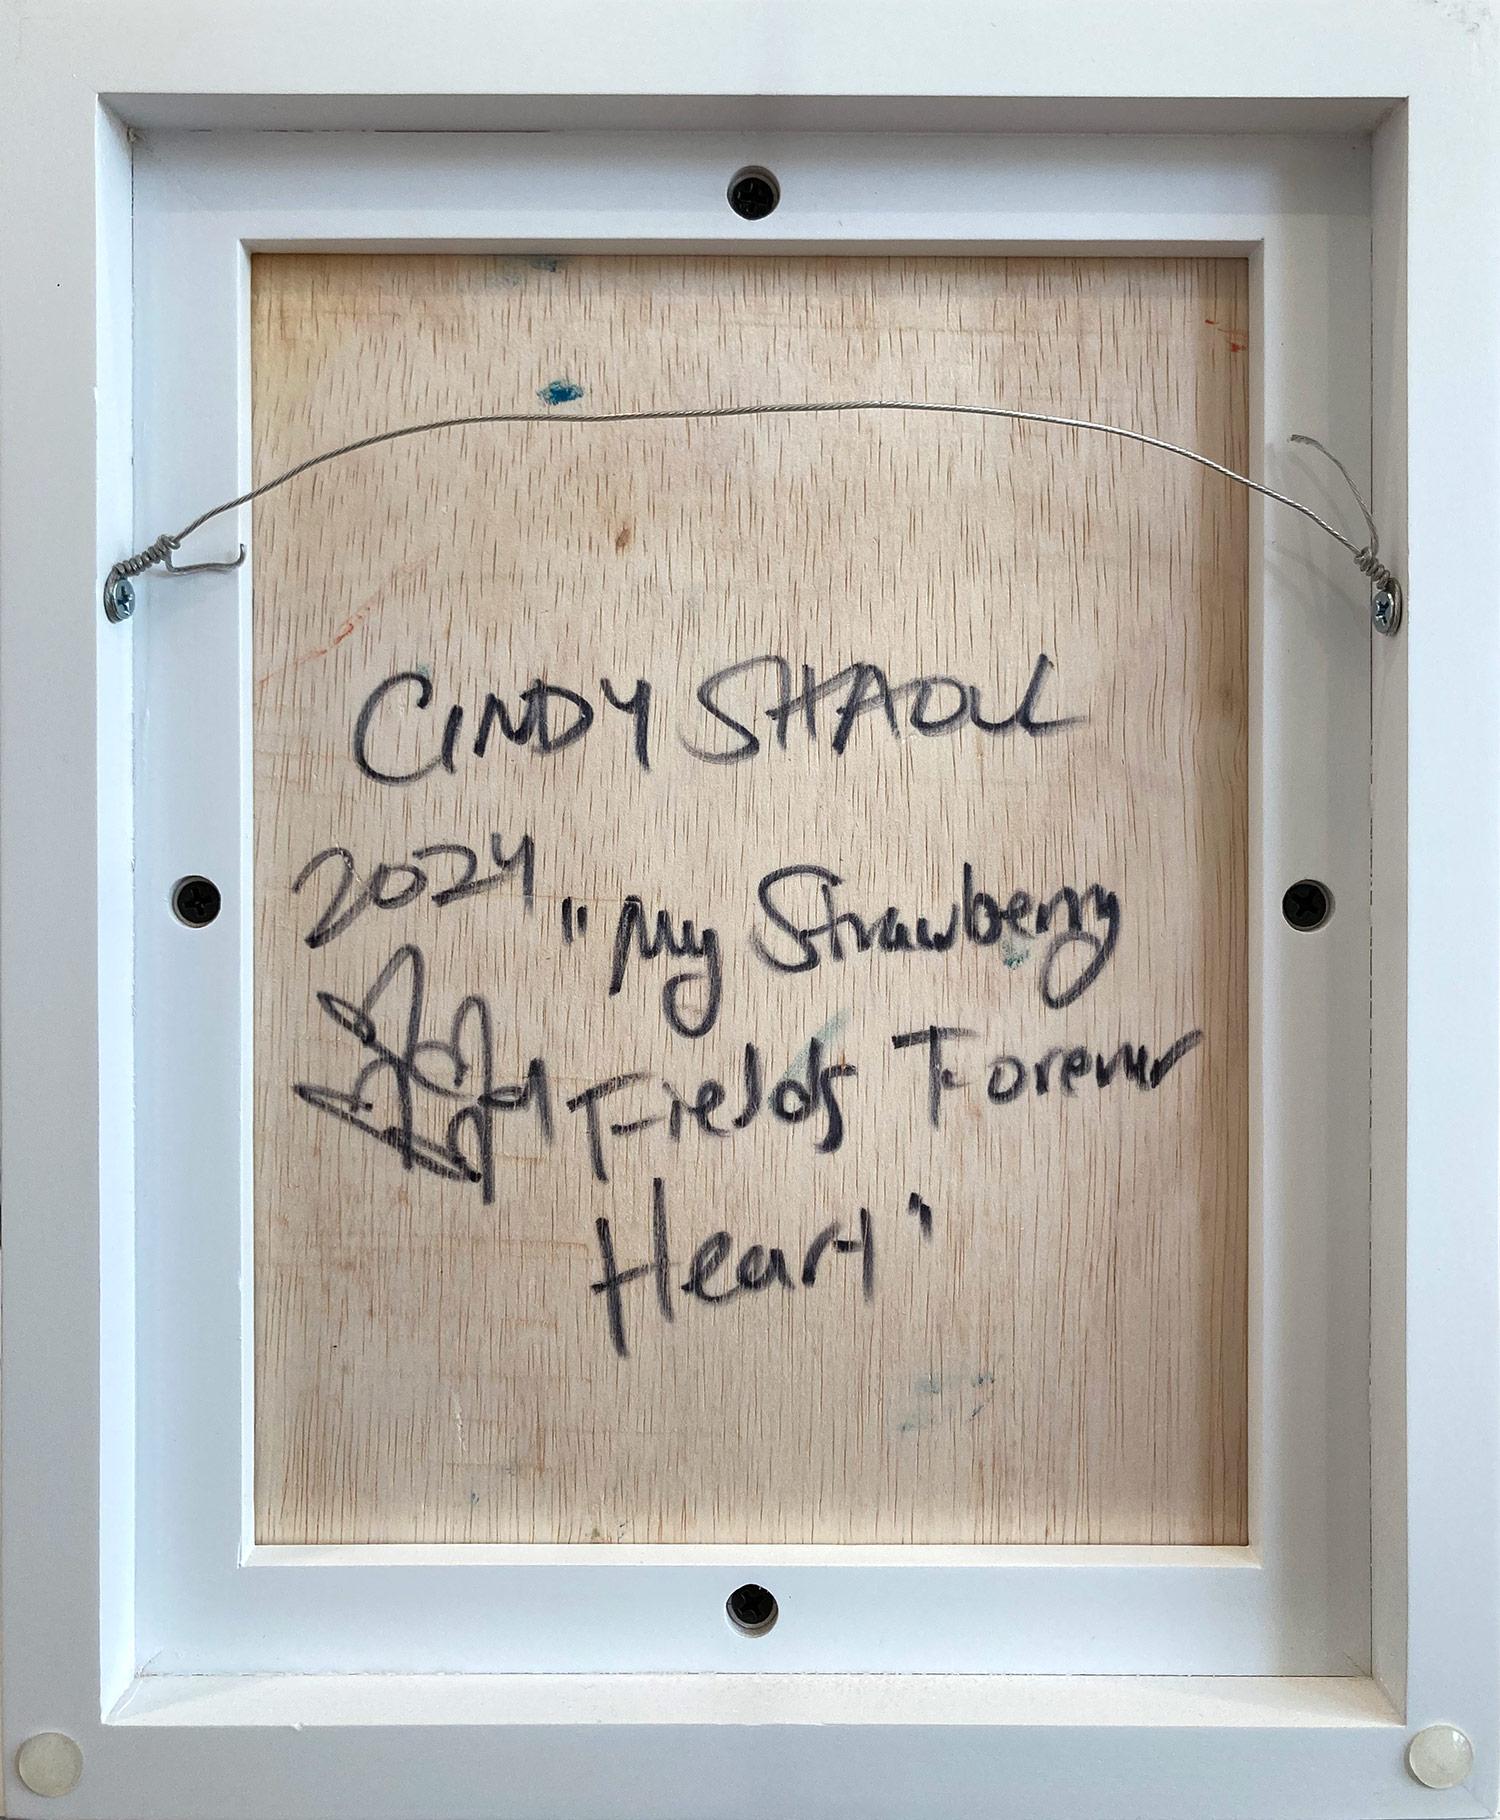 CINDY SHAOUL
2024
"My Strawberry
Fields Forever
Heart"